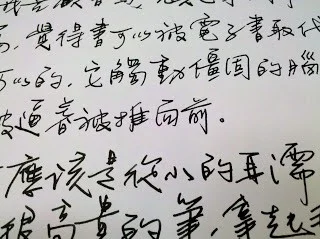 覺得書可以被電子書取代
可以的,它觸動僵固的腦
被逼著被推向前。
應該是從小的耳濡
很高貴的筆,拿起